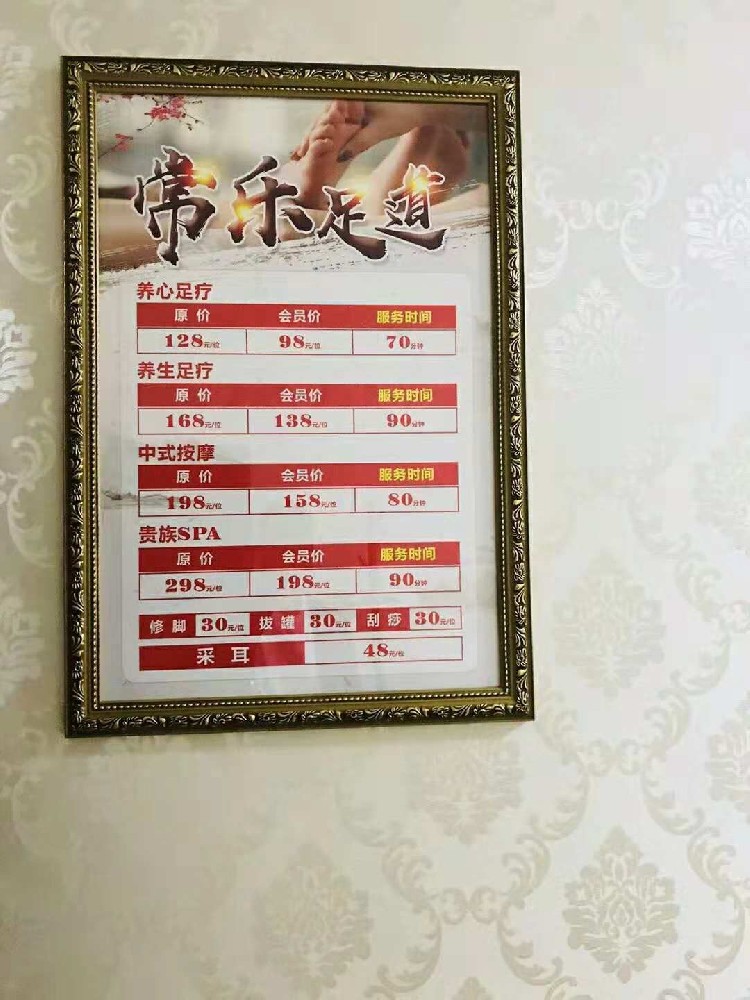 常乐足道
养心足疗
原 价 会员价 服务时间
128元/位 98元/位 70分钟
养生足疗
原 价 会员价 服务时间
168元/位 138元/位 90分钟
中式按摩
原 价 会员价 服务时间
198元/位 158元/位 80分钟
贵族SPA
原 价 会员价 服务时间
298元/位 198元/位 90分钟
修脚 30元/位 拔罐 30元/位 刮痧 30元/位
采耳 48元/位